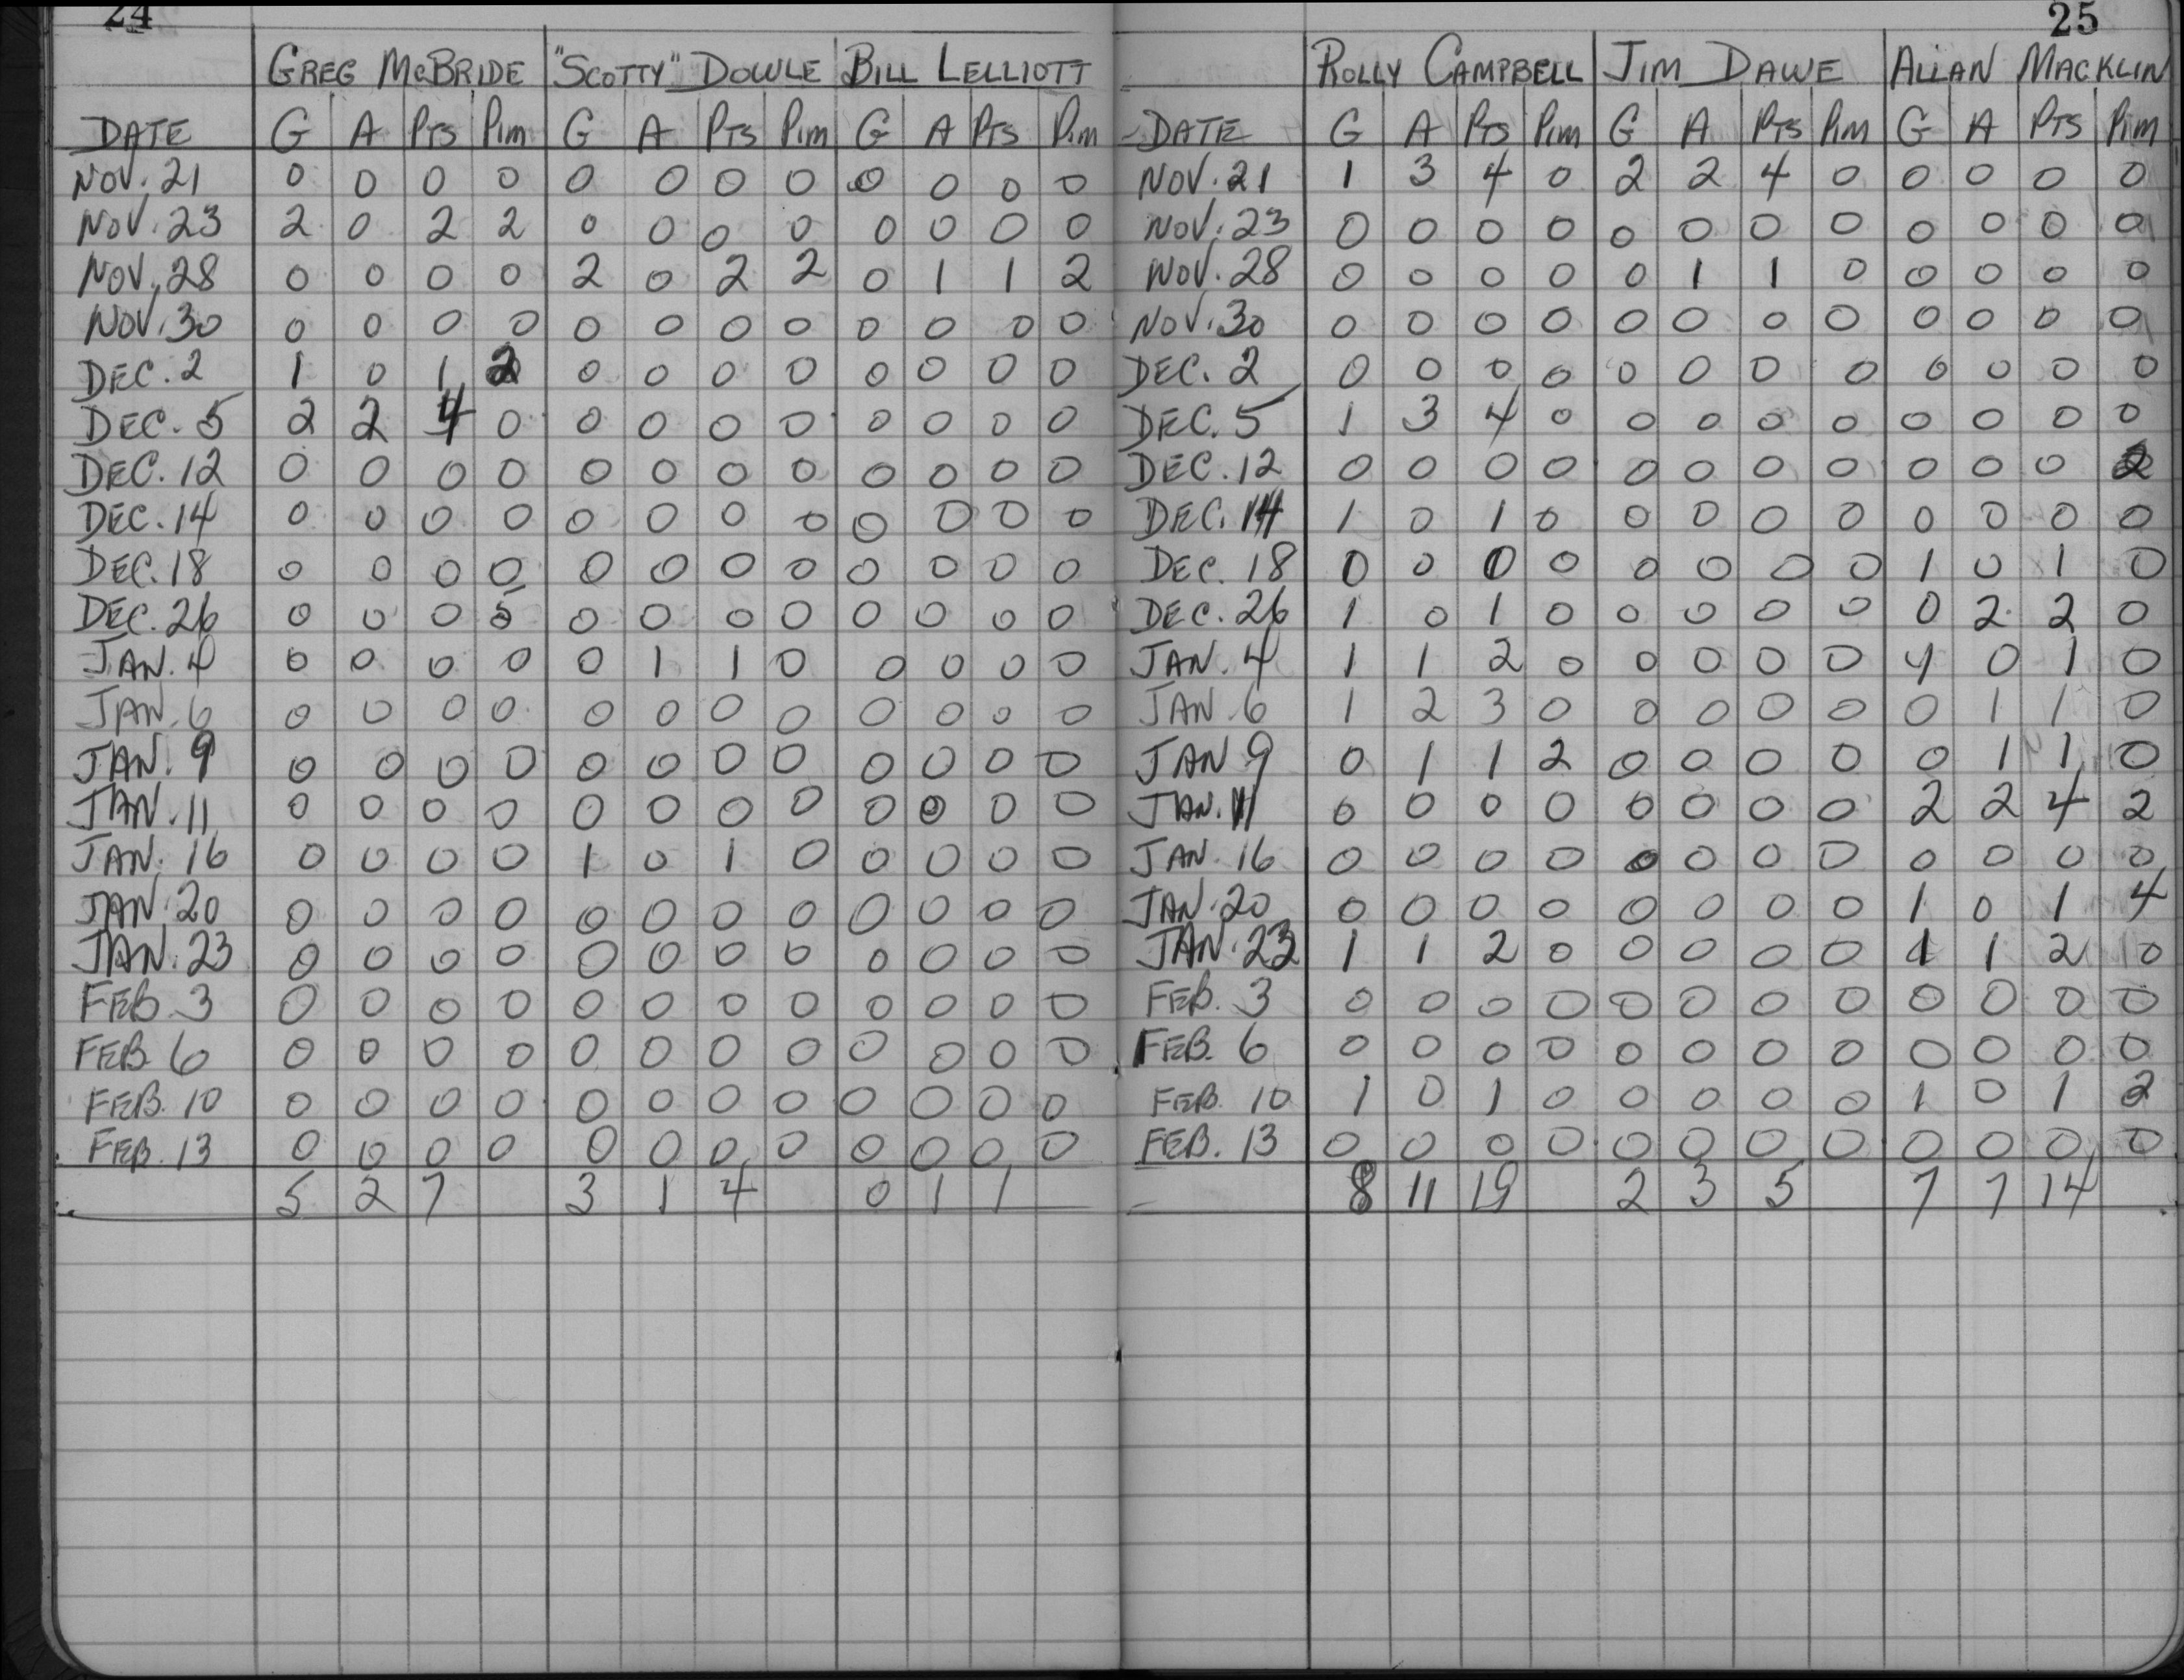 24
GREG McBRIDE "SCOTTY" DOWLE BILL LELLIOTT
DATE G A PTS PIM G A PTS PIM G A PTS PIM
NOV. 21 0 0 0 0 0 0 0 0 0 0 0 0
NOV. 23 2 0 2 2 0 0 0 0 0 0 0 0
NOV. 28 0 0 0 0 2 0 2 2 0 1 1 2
NOV. 30 0 0 0 0 0 0 0 0 0 0 0 0
DEC. 2 1 0 1 2 0 0 0 0 0 0 0 0
DEC. 5 2 2 4 0 0 0 0 0 0 0 0 0
DEC. 12 0 0 0 0 0 0 0 0 0 0 0 0
DEC. 14 0 0 0 0 0 0 0 0 0 0 0 0
DEC. 18 0 0 0 0 0 0 0 0 0 0 0 0
DEC. 26 0 0 0 5 0 0 0 0 0 0 0 0
JAN. 4 0 0 0 0 0 1 1 0 0 0 0 0
JAN. 6 0 0 0 0 0 0 0 0 0 0 0 0
JAN. 9 0 0 0 0 0 0 0 0 0 0 0 0
JAN. 11 0 0 0 0 0 0 0 0 0 0 0 0
JAN. 16 0 0 0 0 1 0 1 0 0 0 0 0
JAN. 20 0 0 0 0 0 0 0 0 0 0 0 0
JAN. 23 0 0 0 0 0 0 0 0 0 0 0 0
FEB. 3 0 0 0 0 0 0 0 0 0 0 0 0
FEB 6 0 0 0 0 0 0 0 0 0 0 0 0
FEB. 10 0 0 0 0 0 0 0 0 0 0 0 0
FEB. 13 0 0 0 0 0 0 0 0 0 0 0 0
5 2 7 3 1 4 0 1 1
25
ROLLY CAMPBELL JIM DAWE ALLAN MACKLIN
DATE G A PTS PIM G A PTS PIM G A PTS PIM
NOV. 21 1 3 4 0 2 2 4 0 0 0 0 0
NOV. 23 0 0 0 0 0 0 0 0 0 0 0 0
NOV. 28 0 0 0 0 0 1 1 0 0 0 0 0
NOV. 30 0 0 0 0 0 0 0 0 0 0 0 0
DEC. 2 0 0 0 0 0 0 0 0 0 0 0 0
DEC. 5 1 3 4 0 0 0 0 0 0 0 0 0
DEC. 12 0 0 0 0 0 0 0 0 0 0 0 2
DEC. 14 1 0 1 0 0 0 0 0 0 0 0 0
DEC. 18 0 0 0 0 0 0 0 0 1 0 1 0
DEC. 26 1 0 1 0 0 0 0 0 0 2 2 0
JAN. 4 1 1 2 0 0 0 0 0 1 0 1 0
JAN. 6 1 2 3 0 0 0 0 0 0 1 1 0
JAN 9 0 1 1 2 0 0 0 0 0 1 1 0
JAN. 11 0 0 0 0 0 0 0 0 2 2 4 2
JAN. 16 0 0 0 0 0 0 0 0 0 0 0 0
JAN. 20 0 0 0 0 0 0 0 0 1 0 1 4
JAN. 23 1 1 2 0 0 0 0 0 1 1 2 10
FEB. 3 0 0 0 0 0 0 0 0 0 0 0 0
FEB. 6 0 0 0 0 0 0 0 0 0 0 0 0
FEB. 10 1 0 1 0 0 0 0 0 1 0 1 2
FEB. 13 0 0 0 0 0 0 0 0 0 0 0 0
8 11 19 2 3 5 7 7 14